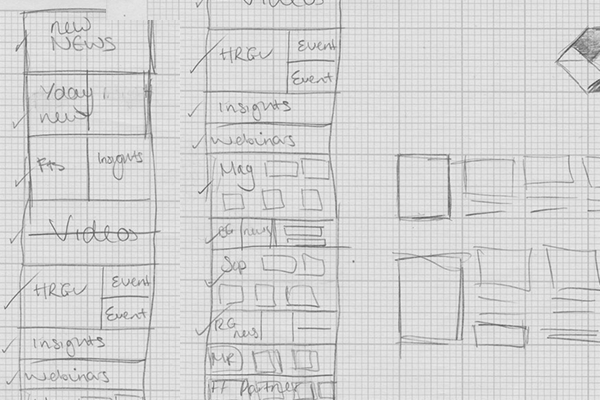 new
NEWS
Yday
news
Fts
Insights
Videos
HRGV
Event
Event
Insights
Webinars
Videos
HRGV
Event
Event
Insights
Webinars
Mag
news
Sup
RG
news
MR
FT Partner